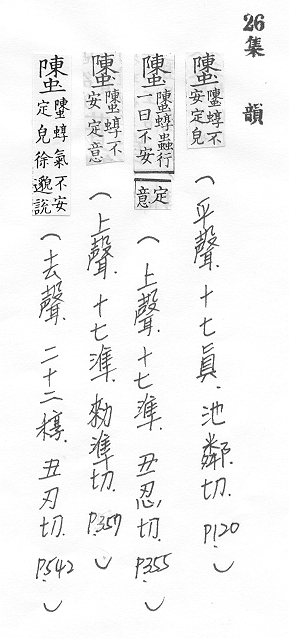 26 集韻
螴 螴蜳不安定皃（平聲.十七眞.池鄰切.P120）
螴 螴蜳蟲行一曰不安定意（上聲.十七準.丑忍切.P355）
螴 螴蜳不安定意（上聲.十七準.勑準切.P.357）
螴 螴蜳氣不安定皃徐邈說（去聲.二十二稕.丑刃切.P.542）